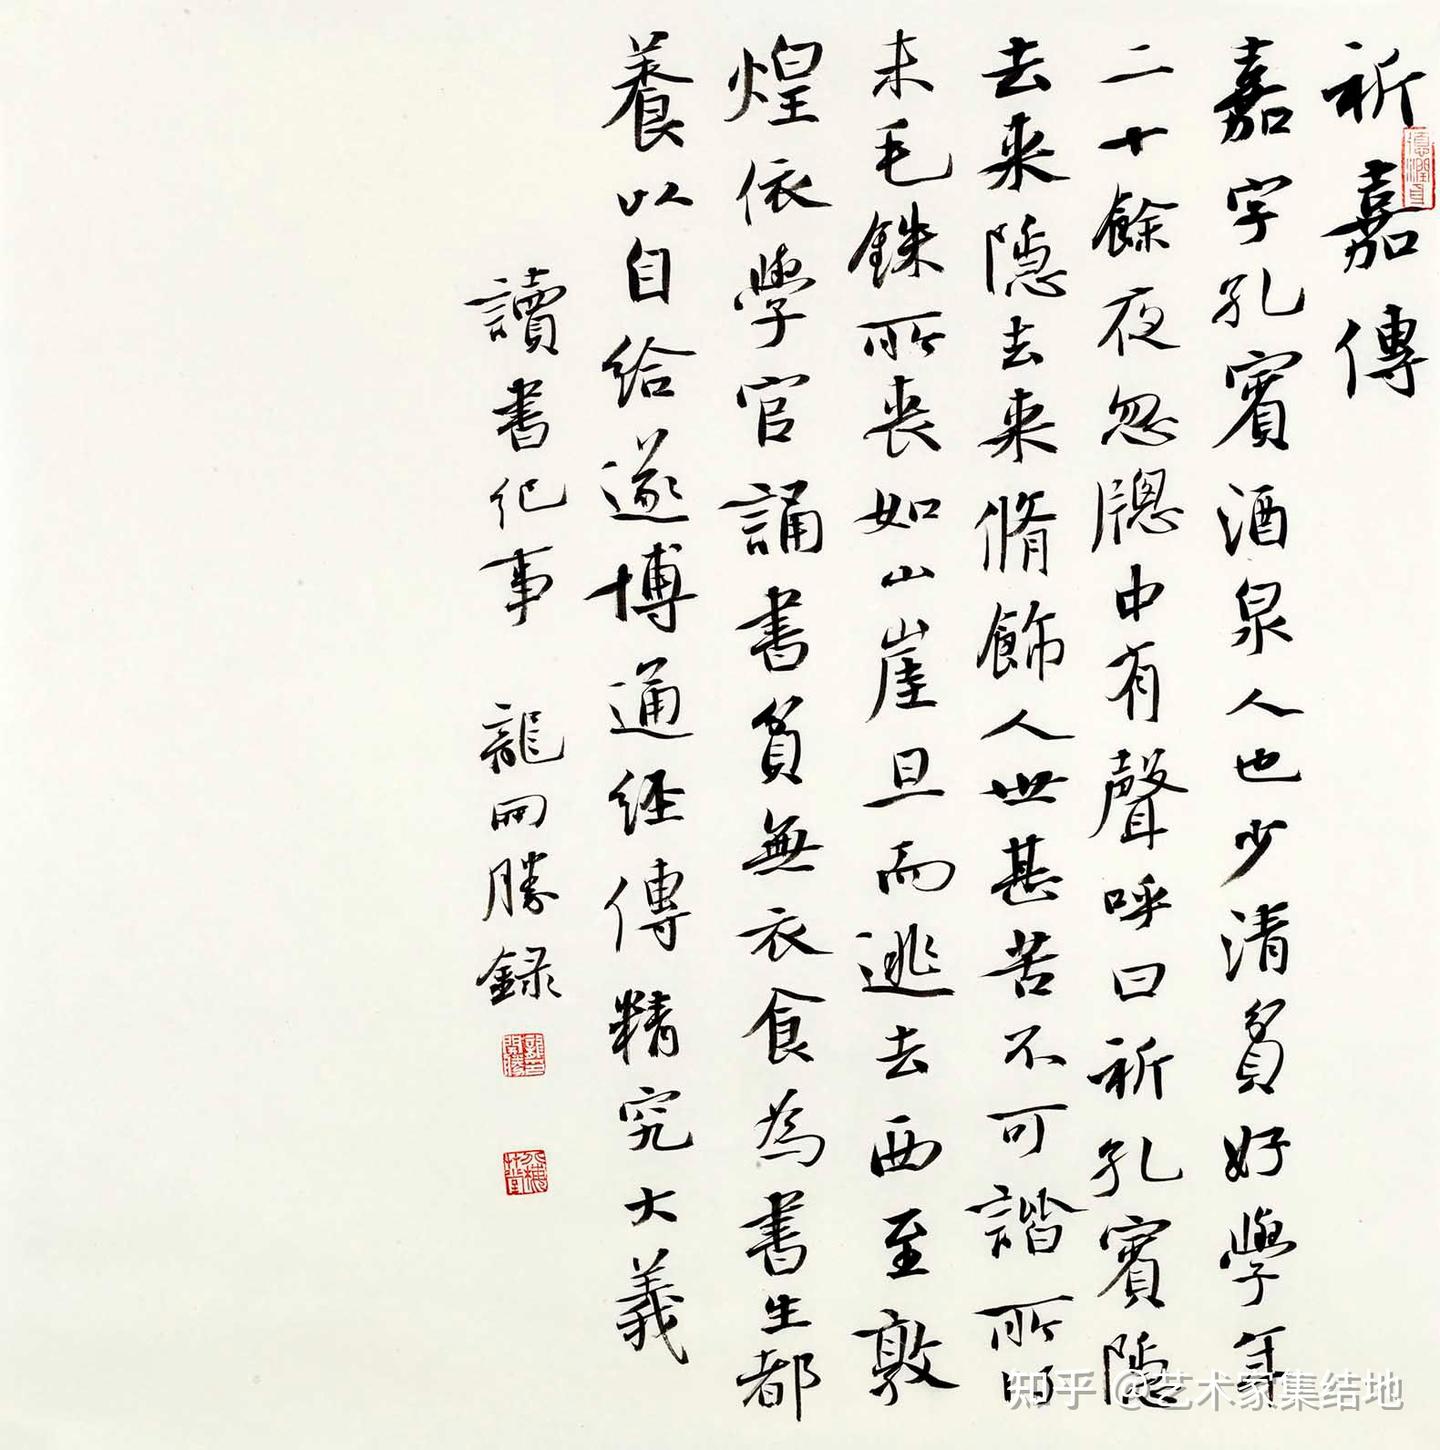 祈嘉傳
嘉字孔賓酒泉人也少清貧好學年
二十餘夜忽牕中有聲呼曰祈孔賓隱
去來隱去來脩飾人世甚苦不可諧所得
未毛銖所喪如山崖旦而逃去西至敦
煌依學官誦書貧無衣食為書生都
養以自給遂博通經傳精究大義
讀書紀事 龍開勝錄
悳潤身
知乎 @艺术家集结地